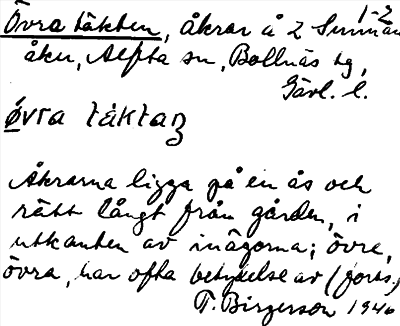 1-2
Övra täkten, åkrar å 2 Sunnan
åker, Alfta sn, Bollnäs tg,
Gävl. l.
övra täktaŋ
Åkrarna ligga på en ås och
rätt långt från gården, i
utkanten av inägorna; övre,
övra, har ofta betydelse av (forts.)
T. Birgerson 1940